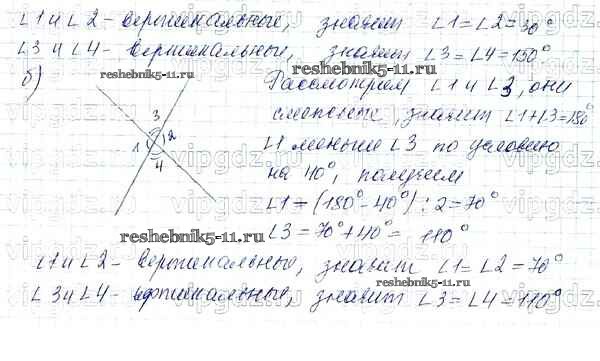 ∠1 и ∠2 - вертикальные, значит ∠1=∠2=30°
∠3 и ∠4 - вертикальные, значит ∠3=∠4=150°
reshebnik5-11.ru
б)
Рассмотрим ∠1 и ∠3, они
смежные, значит ∠1+∠3=180°
∠1 меньше ∠3 по условию
на 40°, получаем
∠1=(180°-40°):2=70°
∠3=70°+40°=110°
3
1 2
4
reshebnik5-11.ru
∠1 и ∠2 - вертикальные, значит ∠1=∠2=70°
∠3 и ∠4 - вертикальные, значит ∠3=∠4=110°
reshebnik5-11.ru
vipgdz.ru